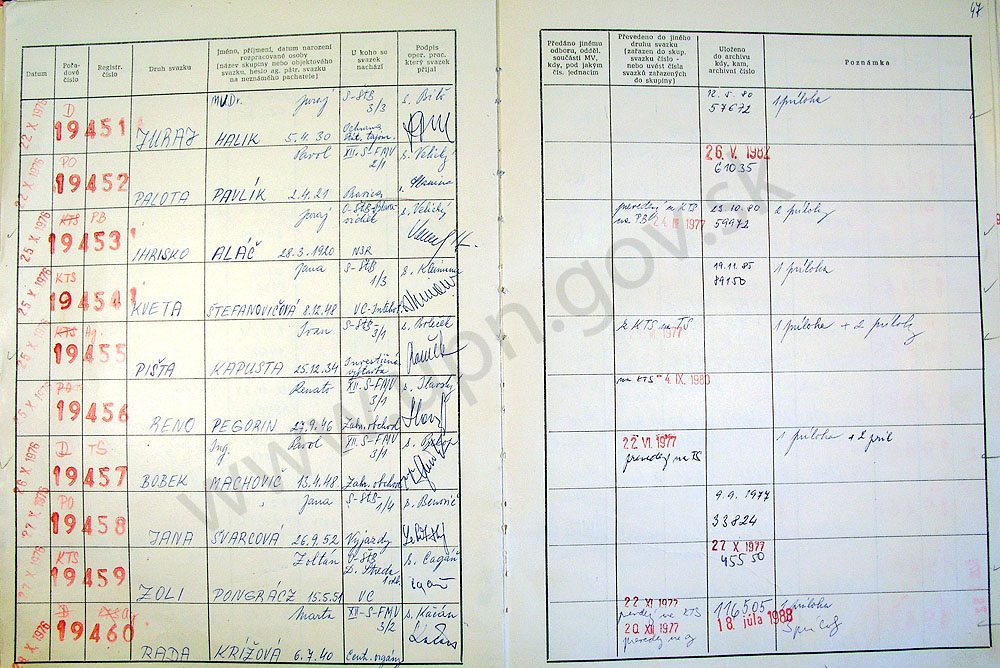 47
Datum
Pořadové číslo
Registr. číslo
Druh svazku
Jméno, příjmení, datum narození rozpracované osoby (název skupiny nebo objektového svazku, heslo ag. pátr. svazku na neznámého pachatele)
U koho se svazek nachází
Podpis oper. prac. který svazek přijal
Předáno jinému odboru, odděl. součásti MV, kdy, pod jakým čís. jednacím
Převedeno do jiného druhu svazku (zařazen do skup. svazku číslo - nebo uvést čísla svazků zařazených do skupiny)
Uloženo do archivu kdy, kam, archivní číslo
Poznámka
22 X. 1976 D 19451 JURAJ MUDr. Juraj HALIK 5.4.30 S-ŠtB 3/3 s. Bitó
12.5.80 57672 1 príloha
X. 1976 PO 19452 PALOTA Pavol PAVLÍK 2.4.21 XII. S-FMV 2/1 s. Velický
26. V. 1982 61035
25 X. 1976 KTS PB 19453 IHRISKO Juraj ALÁČ 28.3.1920 NSR s. Velický
prevedený z KTS na PB 1977 23.10.80 59972 2 prílohy
25 X. 1976 KTS 19454 KVETA Jana ŠTEFANOVIČOVÁ 8.12.48 S-ŠtB 1/3
19.11.85 89150 1 príloha
X. 1976 KTS Ag. 19455 PIŠTA Ivan KAPUSTA 25.12.34 S-ŠtB 3/1
z KTS na TS 1977 1 príloha + 2 prílohy
X. 1976 PO 19456 RENO Renato PEGORIN 27.9.46 XII. S-FMV 3/1 Zahr. obchod
na KTS 4. IX. 1980
26 X. 1976 D TS 19457 BOBEK Ing. Pavol MACHOVIČ 13.4.48 XII. S-FMV 3/1 Zahr. obchod
22 VI. 1977 prevedený na TS 1 príloha + 2 príl
27 X. 1976 PO 19458 JANA Jana ŠVARCOVÁ 26.9.52 S-ŠtB 1/4 Výjazdy s. Benovič
9.9.1977 33824
X. 1976 KTS 19459 ZOLI Zoltán PONGRÁCZ 15.5.51 D. Streda VC s. Cagáň
27 X 1977 45550
X. 1976 D 19460 RADA Marta KRÍŽOVÁ 6.7.40 XII-S-FMV 3/2 Centr. orgány
22 XI. 1977 na KTS 20 XII 1977 116505 18. júla 1988 príloha
www.upn.gov.sk